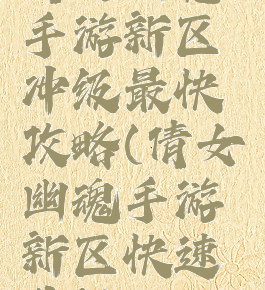 手游新区
冲级最快
攻略(倩女
幽魂手游
新区快速